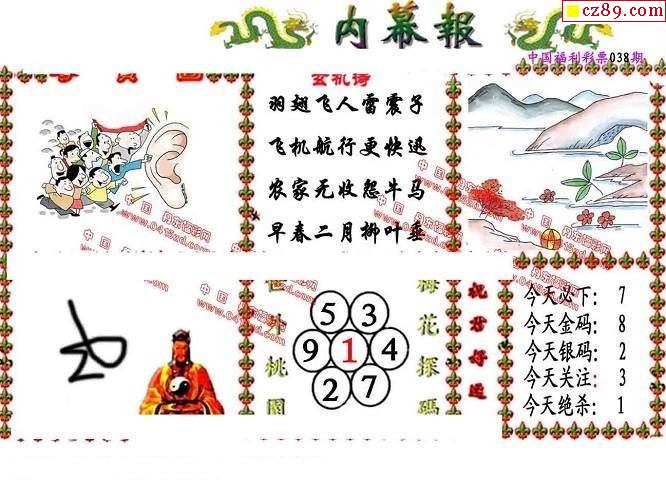 cz89.com
内幕報
中国福利彩票038期
玄机诗
羽翅飞人雷震子
飞机航行更快迅
农家无收怨牛马
早春二月柳叶垂
中国丹东福彩网
www.0415zd.com
世外桃園
5 3
9 1 4
2 7
梅花探碼
祝君好运
今天必下：7
今天金码：8
今天银码：2
今天关注：3
今天绝杀：1